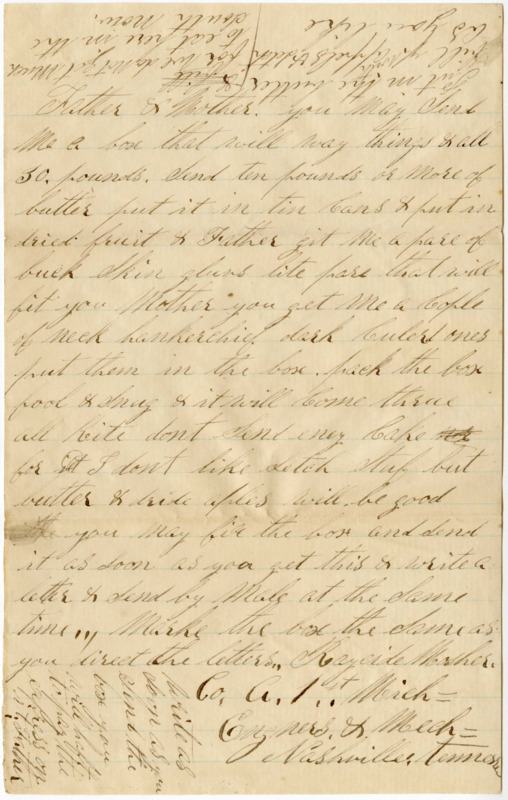 Father & Mother. you May Send
Me a box that will way things & all
50. pounds. Send ten pounds or more of
butter put it in tin Cans & put in
dried fruit & Father git Me a pare of
buck Skin gluvs lite pare that will
fit you Mother you get Me a Cople
of Neck hankerchief. dark Culerd ones
put them in the box. pack the box
fool & Snug & it will Come thrue
all rite dont Send eney Cake
for it I dont like Setch Stuf but
butter & dride aples will be good
you may fix the box and Send
it as Soon as you get this & write a
letter & Send by Male at the Same
time,,, Marke the box the Same as
you direct the letters,,
Co. A. 1st Mich=
Engners. & Mech=
Nashville. Tennessee
write as
Soon as you
Send the
box you
will not
the
put in the butter &
for we do Not get Much
to eat here in the
South Now.
as you like